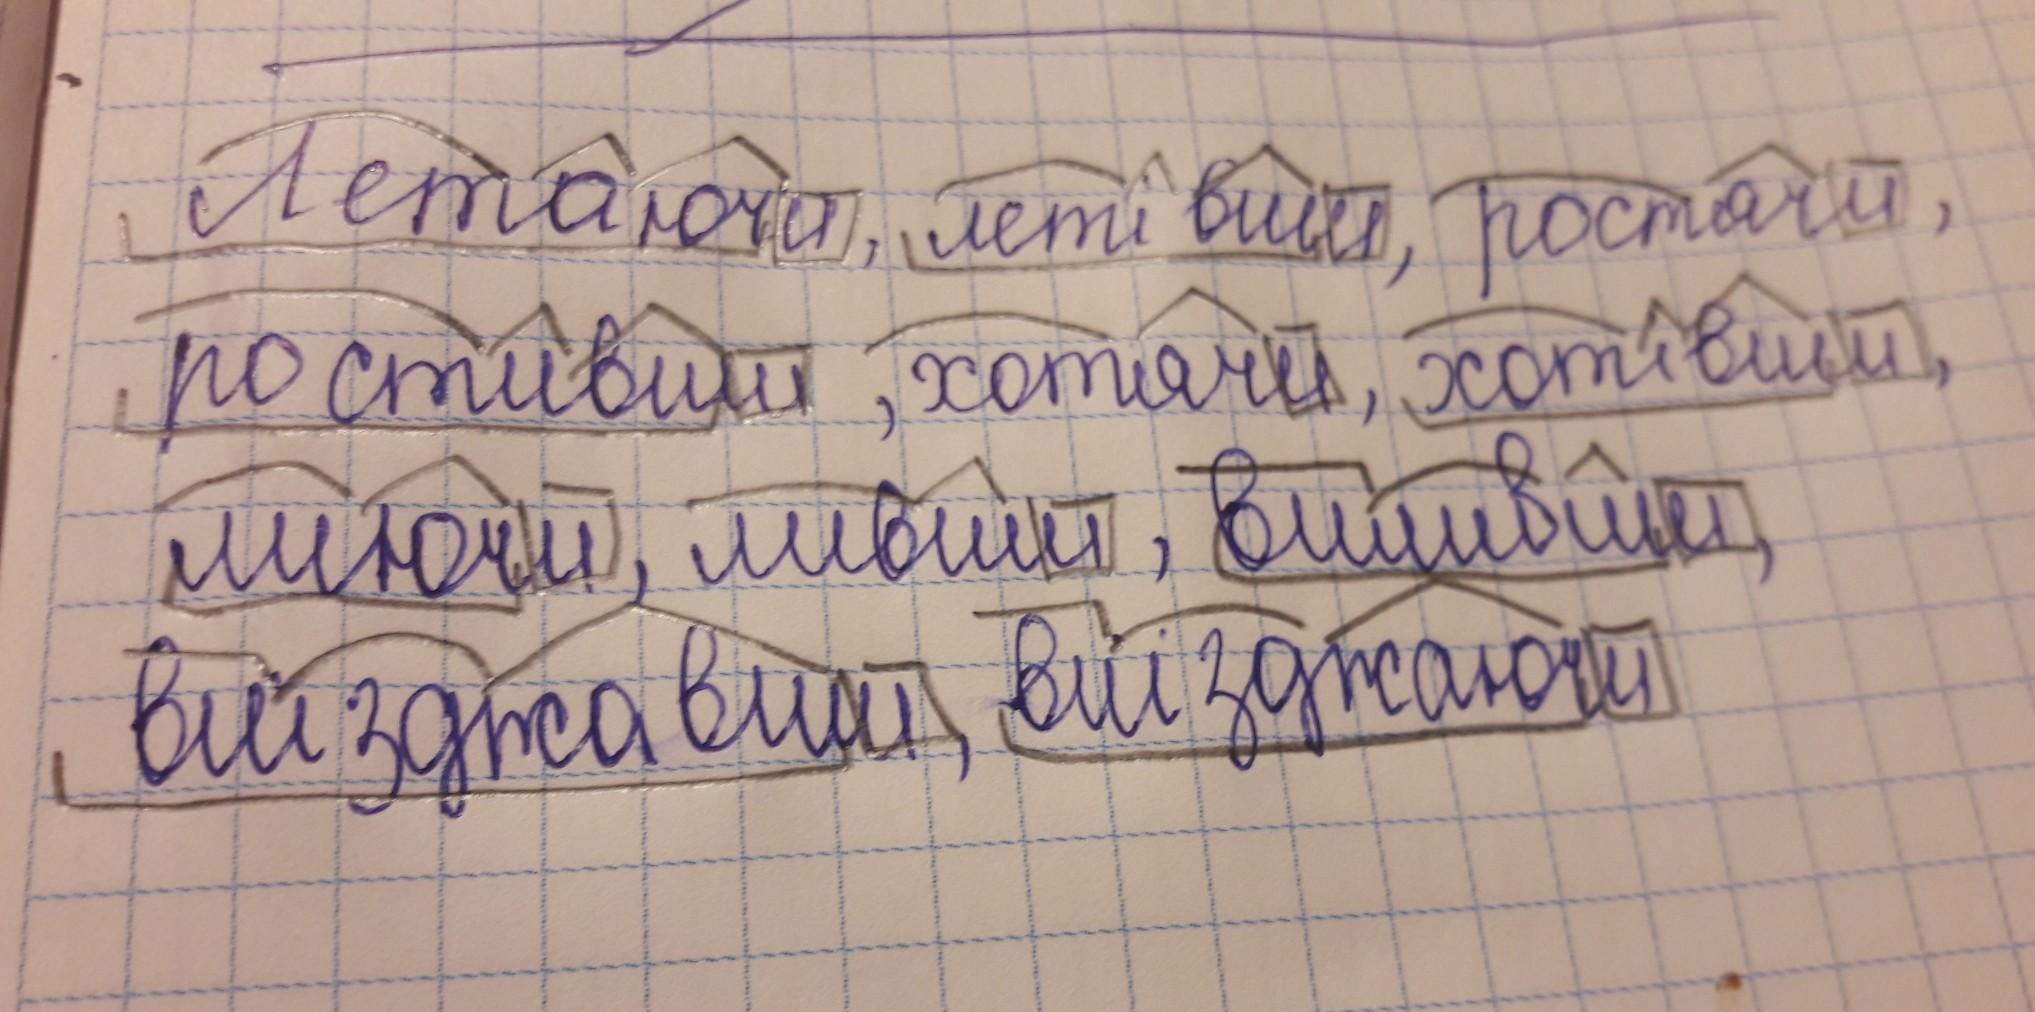 Летаючи, летівши, ростачи,
ростивши, хотячи, хотівши,
миючи, мивши, вишивши,
виїзджавши, виїзджаючи